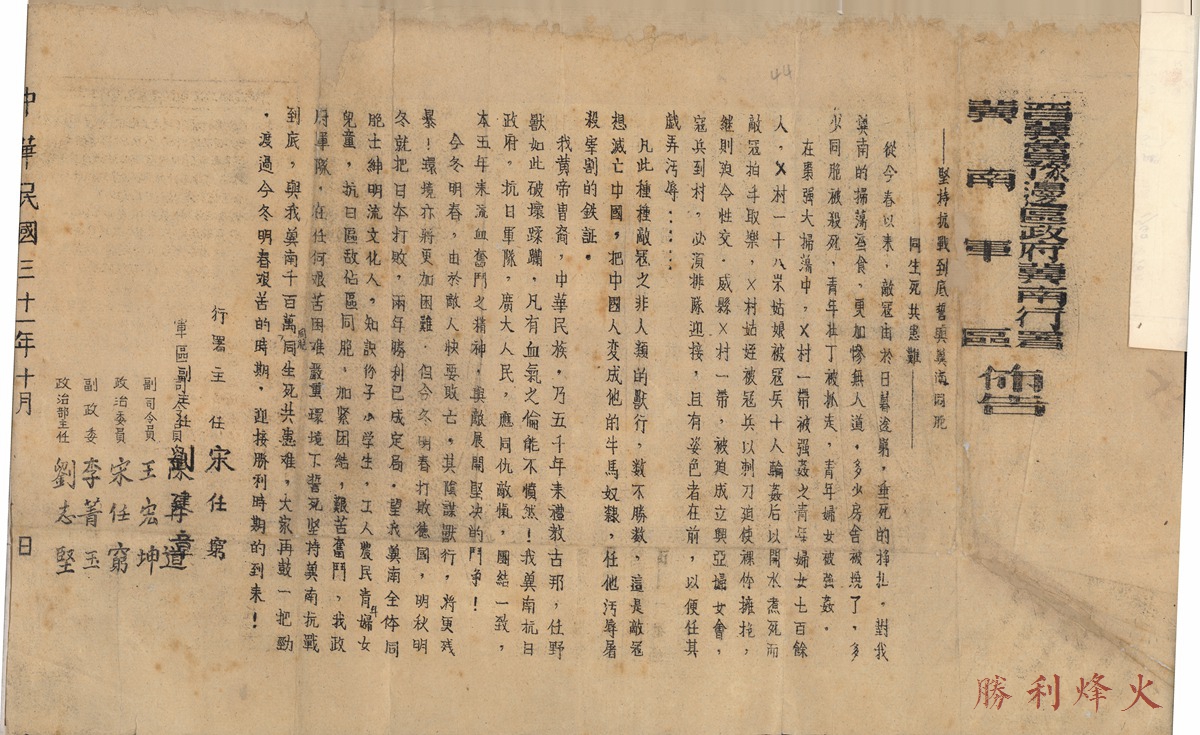 晋冀魯豫邊區政府冀南行署
冀南軍區
佈告
——堅持抗戰到底誓與冀南同胞
同生死共患難——
從今春以来，敵寇由於日暮途窮，垂死的掙扎，對我
冀南的掃蕩蚕食，更加慘無人道，多少房舍被燒了，多
少同胞被殺死，青年壮丁被抓走，青年婦女被强姦。
在棗强大掃蕩中，×村一帶被强姦之青年婦女七百餘
人，×村一十八岁姑娘被寇兵十人輪姦后以開水煮死而
敵寇拍手取樂，×村姑姪被寇兵以刺刀迫使裸体擁抱，
继則迫令性交。威縣×村一帶，被迫成立興亞婦女會，
寇兵到村，必須排隊迎接，且有姿色者在前，以便任其
戲弄汚辱……
凡此種種敵寇之非人類的獸行，数不勝数，這是敵寇
想滅亡中國，把中國人变成他的牛馬奴隸，任他汚辱屠
殺宰割的鉄証。
我黄帝胄裔，中華民族，乃五千年来禮教古邦，任野
獸如此破壞蹂躪，凡有血氣之倫能不憤然！我冀南抗日
政府，抗日軍隊，廣大人民，應同仇敵愾，團結一致，
本五年来流血奮鬥之精神，與敵展開堅决的鬥争！
今冬明春，由於敵人快要敗亡，其陰謀獸行，將更残
暴！環境亦將更加困難。但今冬明春打敗德國，明秋明
冬就把日本打敗，兩年勝利已成定局。望我冀南全体同
胞士紳明流文化人，知識份子小學生，工人農民青年婦女
兒童，抗日區敌佔區同胞，加紧团結，艱苦奮鬥，我政
府軍隊，在任何艰苦困难嚴重環境下誓死堅持冀南抗戰
到底，與我冀南千百萬同胞同生死共患难，大家再鼓一把勁
，渡過今冬明春艰苦的時期，迎接勝利時期的到来！
行署主任 宋任窮
副主任 劉建章
軍區司令員 陳再道
副司令員 王宏坤
政治委員 宋任窮
副政委 李菁玉
政治部主任 劉志堅
中華民國三十一年十月 日
44
勝利烽火